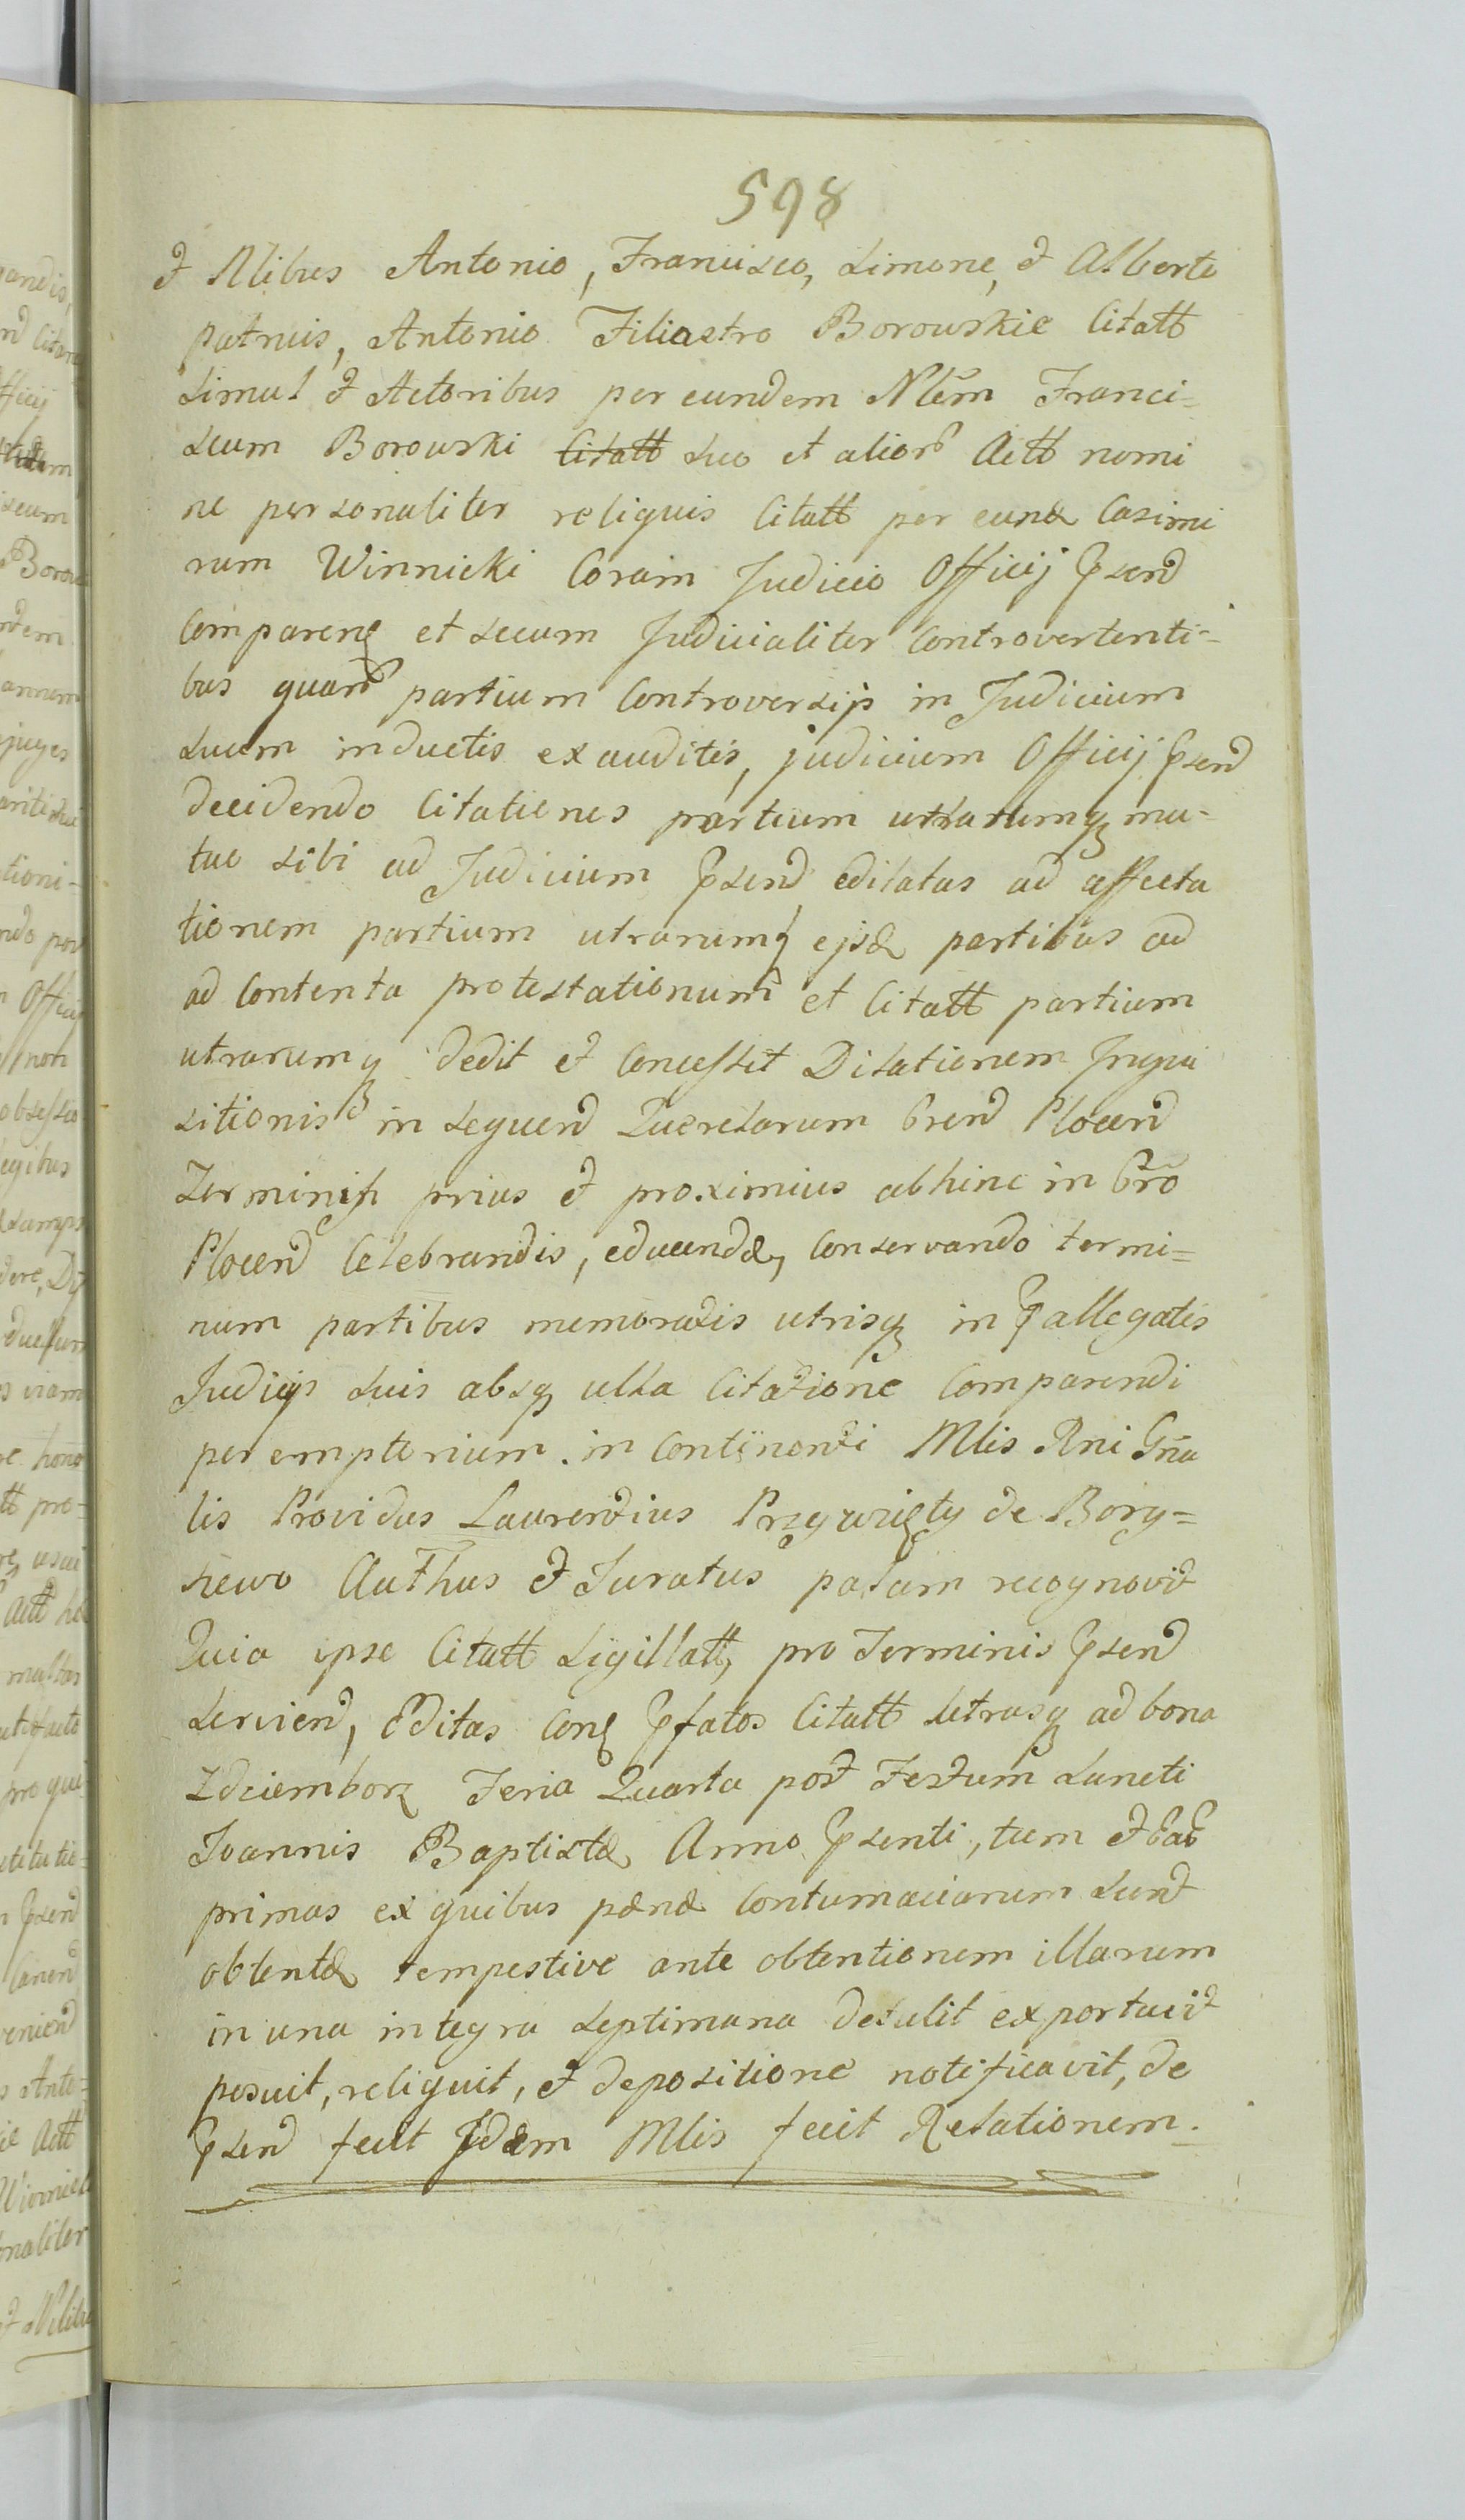 598
et Nlibus Antonio, Francisco, Simone, et Alberto
patruis, Antonio Filiastro Borowskie Citatt
simul et Actoribus per eundem Nlem Franci=
scum Borowski Citatt suo et alior Actt nomi
ne personaliter reliquis Citatt per eund Casimi
rum Winnicki Coram Judicio Officij psend
Comparen et secum Judicialiter Controvertenti=
bus quar partium Controversijs in Judicium
suum inductis exauditis, judicium Officij psend
decidendo Citationes partium utrarumq mu-
tuo sibi ad Judicium psend editatas ad affecta
tionem partium utrarumq ejsd partibus ad
ad Contenta protestationum et Citatt partium
utrarumq dedit et Concessit Dilationem Inqui
sitionis in sequend Querelarum Crend Plocend
Terminis prius et proximius abhinc in Cro
Plocend Celebrandis, educendæ, Conservando termi=
num partibus memoratis utrisq in pallegatis
Judicijs suis absq ulla Citatione Comparendi
peremptorium. in Continenti Mlis Rni Gna
lis Providus Laurentius Przywzięty de Bory=
szewo Authus et Juratus palam recognovit
Quia ipse Citatt Sigillatt, pro Terminis psend
Serviend, Editas Con pfatos Citatt Utrasq ad bona
Zdziemborz Feria Quarta post Festum Sancti
Joannis Baptistæ Anno psenti, tum et
primas ex quibus pænæ Contumaciarum sunt
obtentæ tempestive ante obtentionem illarum
in una integra septimana detulit exportavit
posuit, reliquit, et depositione notificavit, de
psend fecit Idem Mlis fecit Relationem.